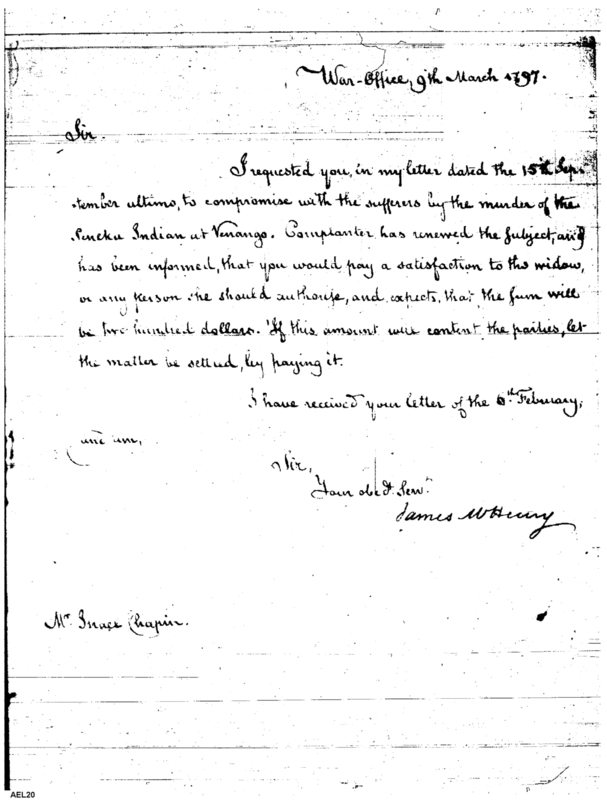 War-Office, 9th March 1797.
Sir.
I requested you, in my letter dated the 15th Sep-
tember ultimo, to compromise with the sufferers by the murder of the
Seneka Indian at Venango. Cornplanter has renewed the subject, and
has been informed, that you would pay a satisfaction to the widow,
or any person she should authorise, and expects, that the sum will
be two hundred dollars. If this amount will content the parties, let
the matter be settled, by paying it.
I have received your letter of the 6th February,
and am,
Sir,
Your obedt. Servt.
James McHenry
Mr. Israel Chapin.
AEL20